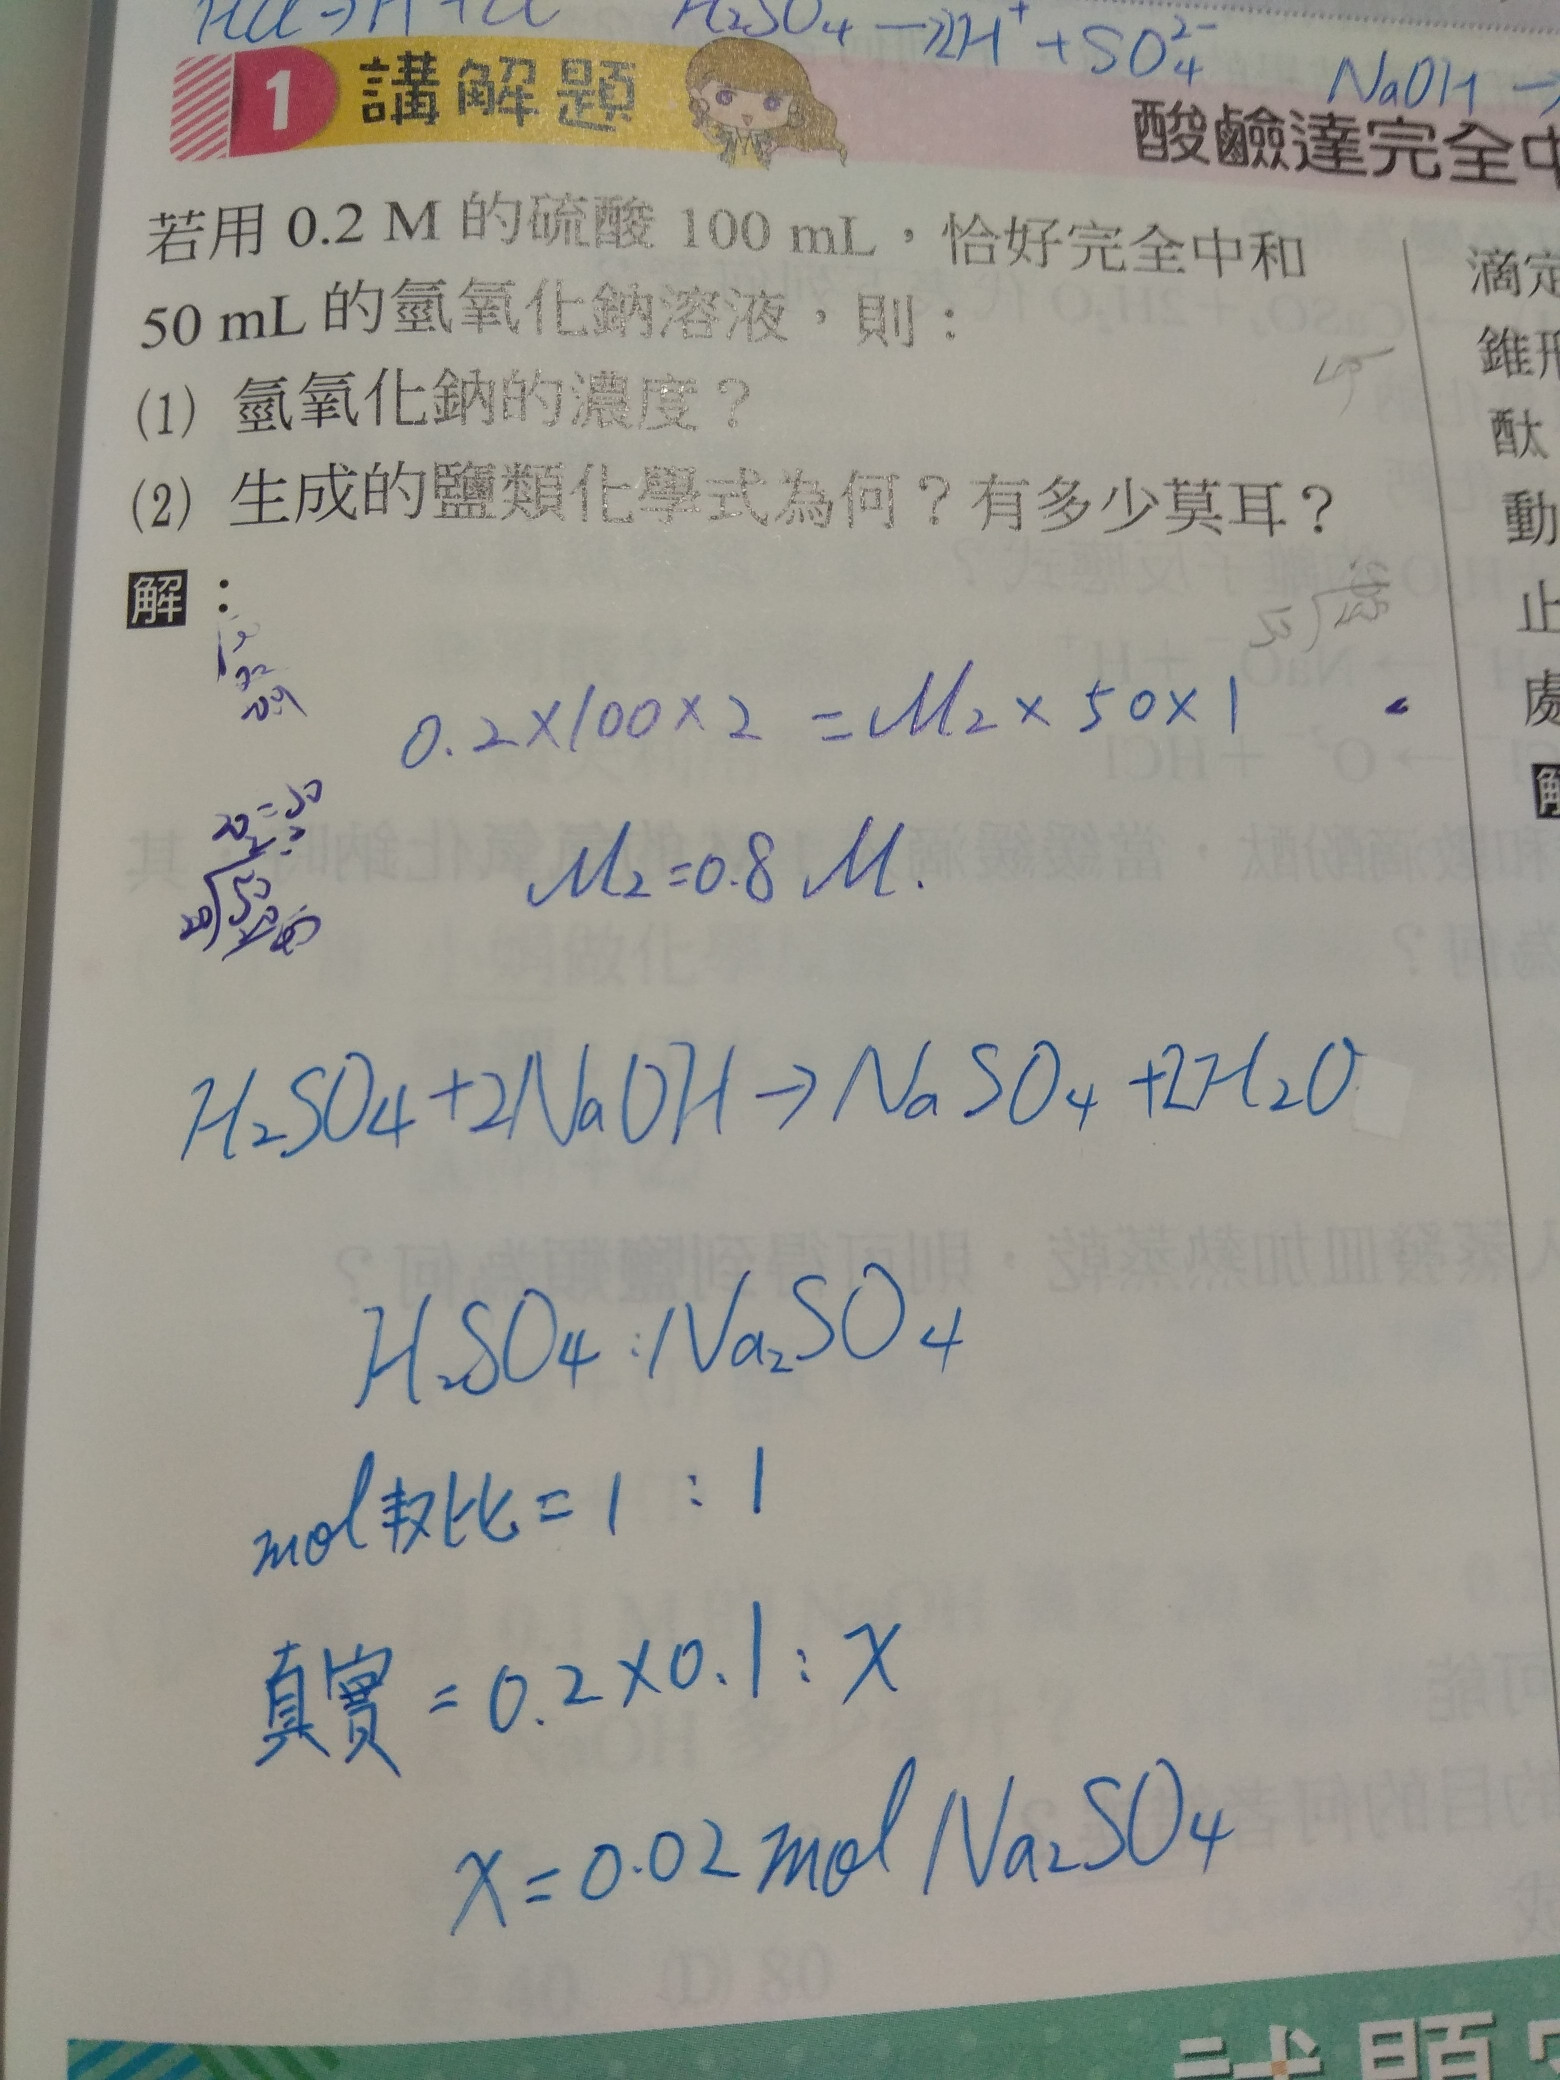 H₂SO₄ → 2H⁺ + SO₄²⁻
NaOH →
1 講解題
酸鹼達完全
若用 0.2 M 的硫酸 100 mL，恰好完全中和
50 mL 的氫氧化鈉溶液，則：
(1) 氫氧化鈉的濃度？
(2) 生成的鹽類化學式為何？有多少莫耳？
解：
0.2×100×2 = M₂×50×1
M₂=0.8 M.
H₂SO₄+2NaOH→NaSO₄+2H₂O
H₂SO₄:Na₂SO₄
mol 比=1:1
真實=0.2×0.1:x
x=0.02 mol Na₂SO₄
滴定
錐形
酞
動
止
處
解